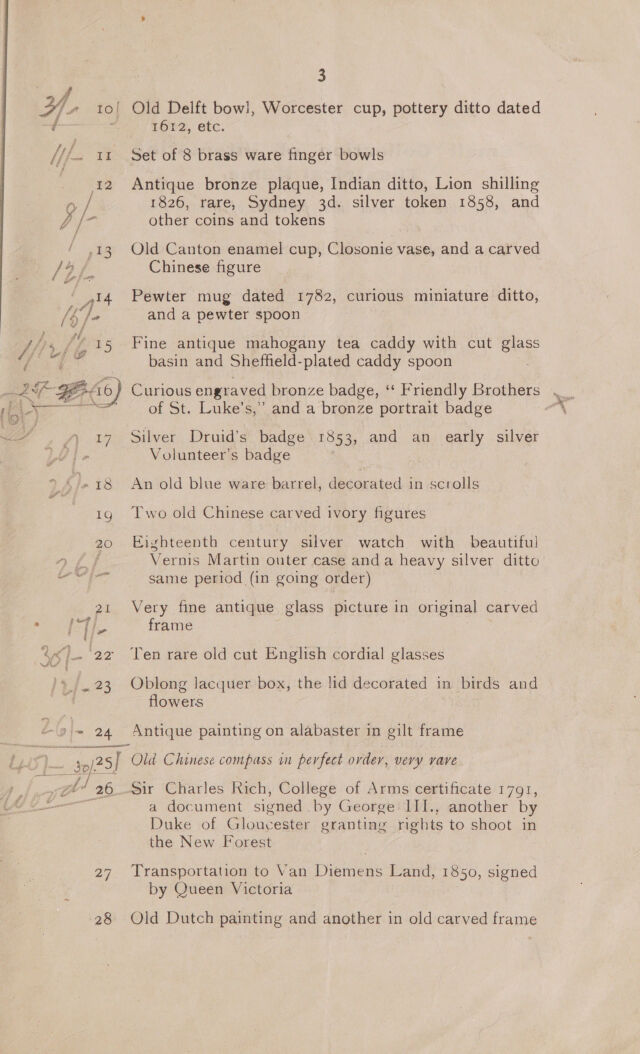 3
10 Old Delft bowl, Worcester cup, pottery ditto dated
1612, etc.
11 Set of 8 brass ware finger bowls
12 Antique bronze plaque, Indian ditto, Lion shilling
1826, rare, Sydney 3d. silver token 1858, and
other coins and tokens
13 Old Canton enamel cup, Closonie vase, and a carved
Chinese figure
14 Pewter mug dated 1782, curious miniature ditto,
and a pewter spoon
15 Fine antique mahogany tea caddy with cut glass
basin and Sheffield-plated caddy spoon
16 Curious engraved bronze badge, “ Friendly Brothers
of St. Luke's,” and a bronze portrait badge
17 Silver Druid's badge 1853, and an early silver
Volunteer's badge
18 An old blue ware barrel, decorated in scrolls
19 Two old Chinese carved ivory figures
20 Eighteenth century silver watch with beautiful
Vernis Martin outer case and a heavy silver ditto
26/-
same period (in going order)
21 Very fine antique glass picture in original carved
17/-
frame
22 Ten rare old cut English cordial glasses
23 Oblong lacquer box, the lid decorated in birds and
flowers
26/- 24 Antique painting on alabaster in gilt frame
30/ 25 Old Chinese compass in perfect order, very rare
26 Sir Charles Rich, College of Arms certificate 1791,
a document signed by George III., another by
Duke of Gloucester granting rights to shoot in
the New Forest
27 Transportation to Van Diemens Land, 1850, signed
by Queen Victoria
28 Old Dutch painting and another in old carved frame